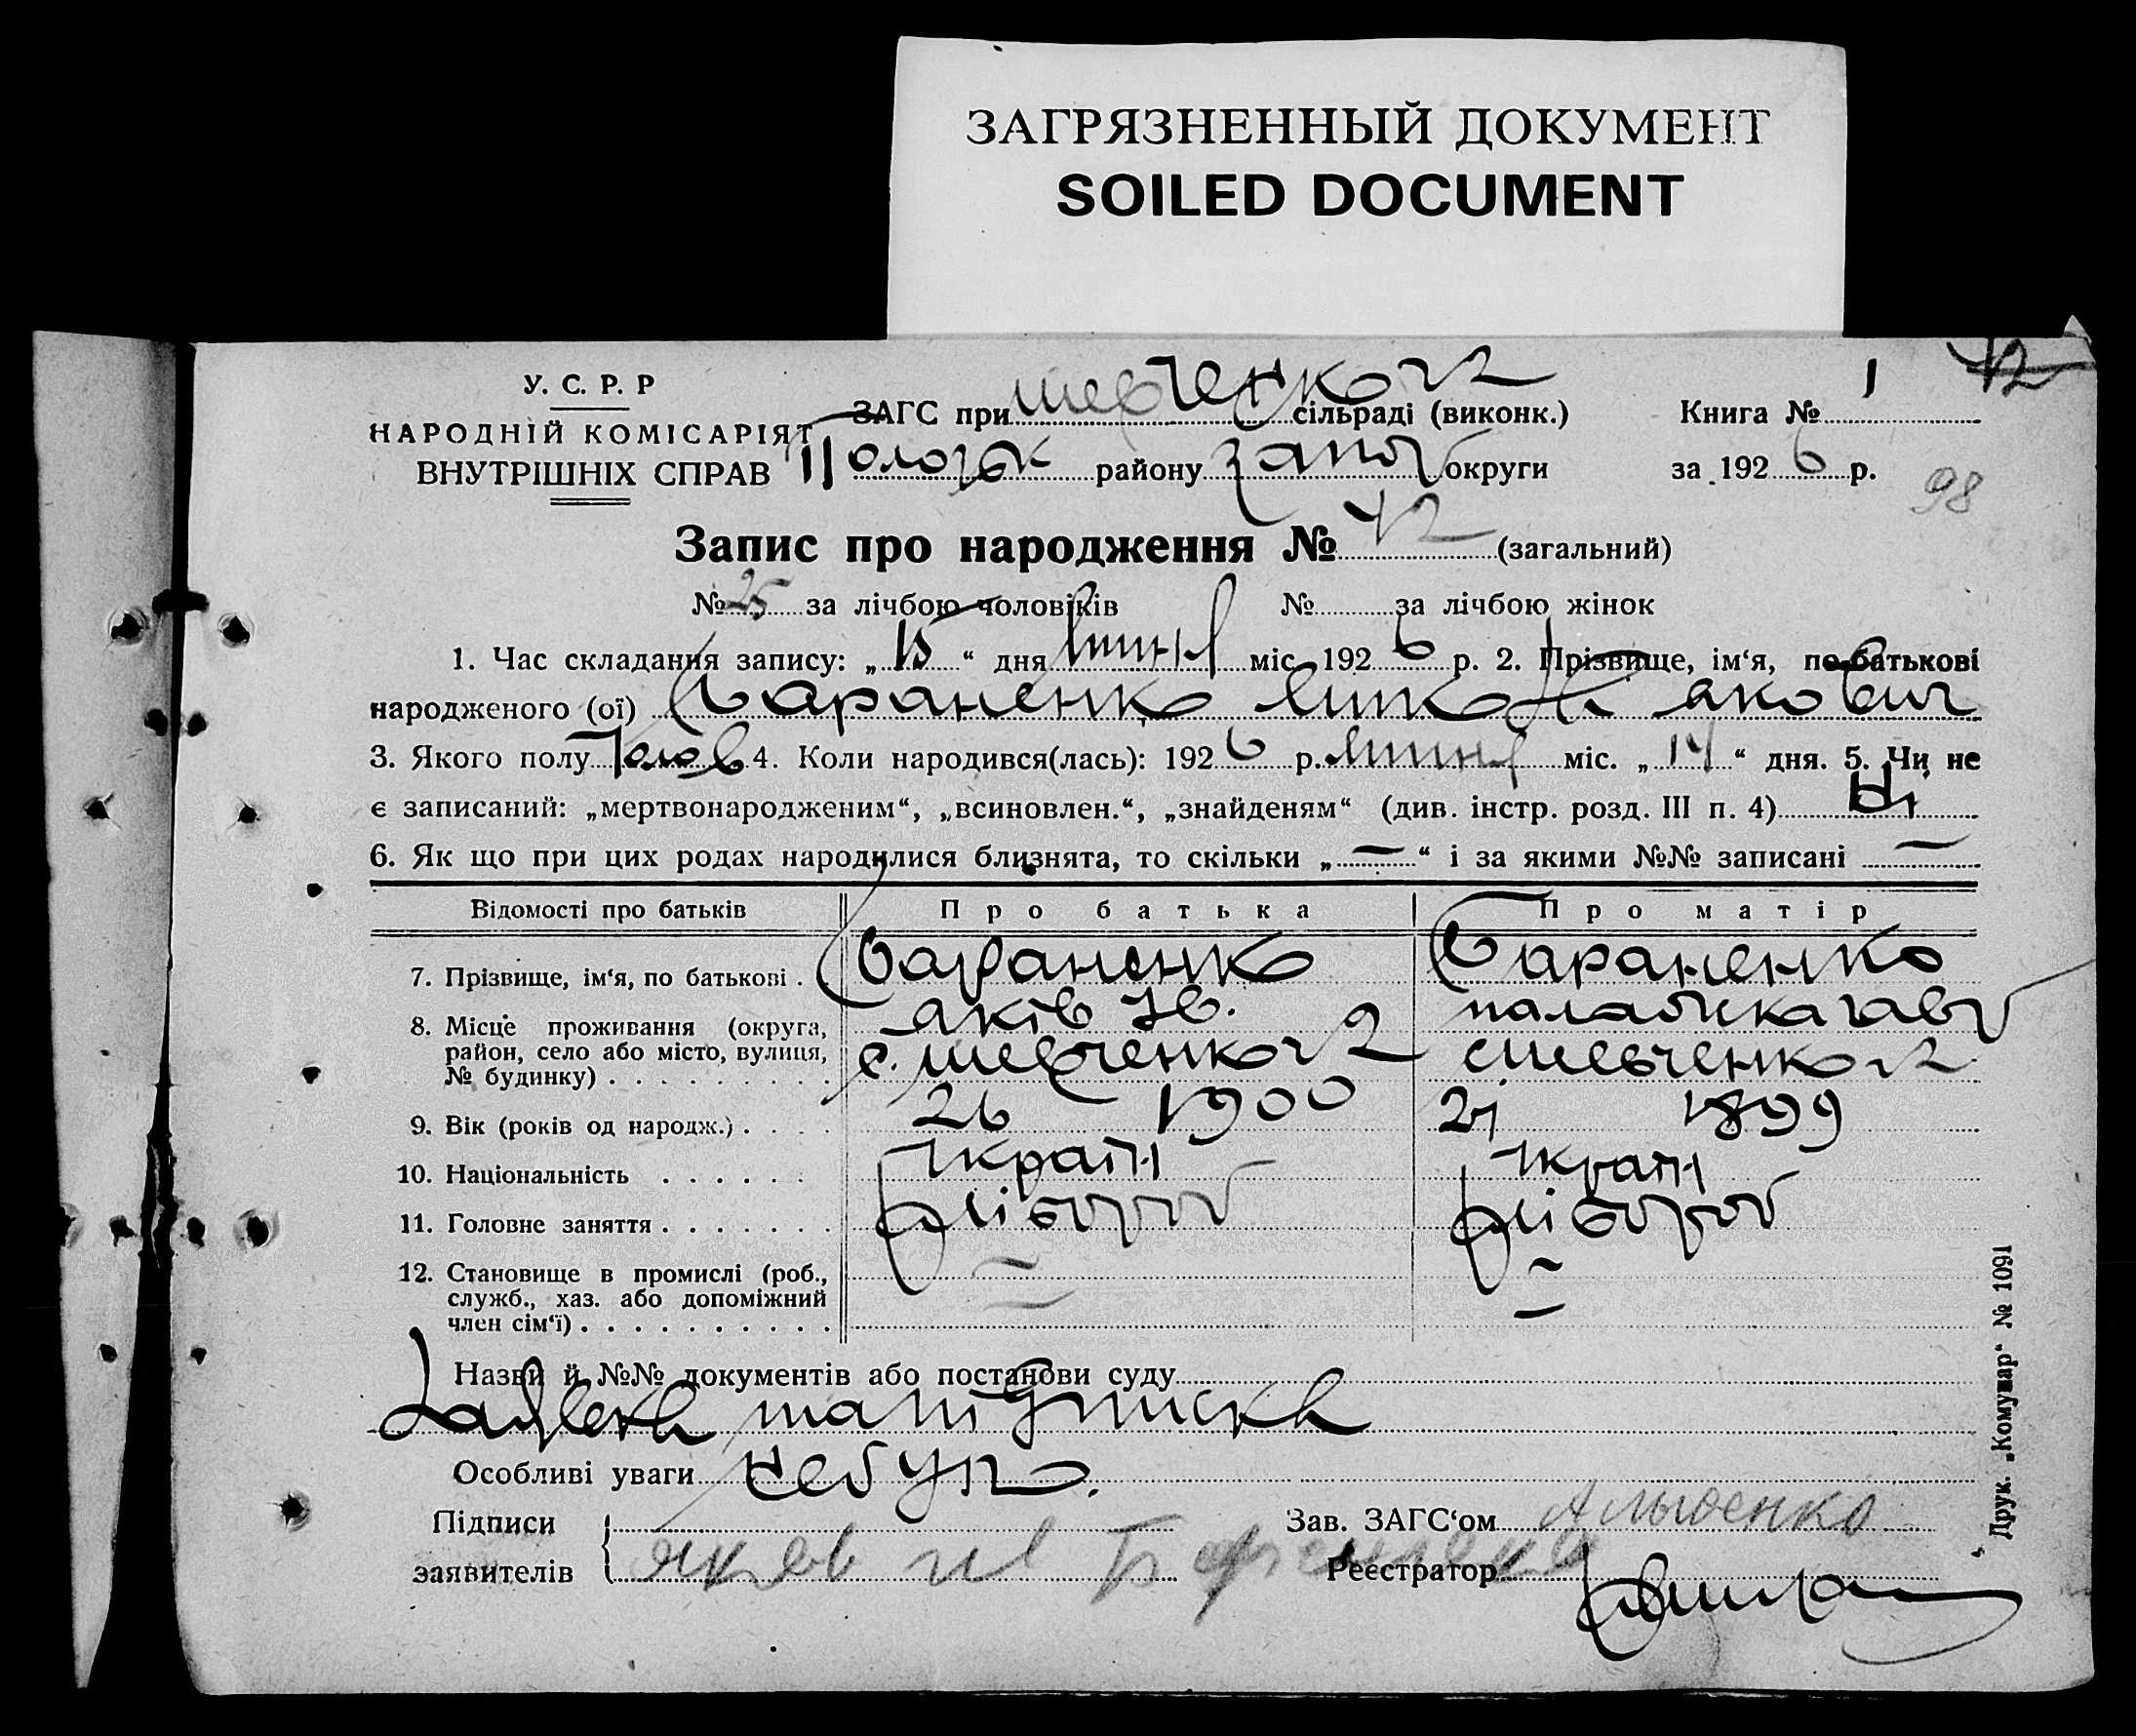 ЗАГРЯЗНЕННЫЙ ДОКУМЕНТ
SOILED DOCUMENT
У. С. Р. Р
НАРОДНІЙ КОМІСАРІЯТ
ВНУТРІШНІХ СПРАВ
ЗАГС при сільраді (виконк.)
Пологськ району Запор округи
Книга № 1
12
за 1926 р.
98
Запис про народження № 42 (загальний)
№ 25 за лічбою чоловіків № за лічбою жінок
1. Час складання запису: „15“ дня липня міс. 1926 р. 2. Прізвище, ім‘я, по батькові
народженого (ої) Бараненко Якович
3. Якого полу чолов 4. Коли народився(лась): 1926 р. липня міс. „14“ дня. 5. Чи не
є записаний: „мертвонародженим“, „всиновлен.“, „знайденям“ (див. інстр. розд. III п. 4) Ні
6. Як що при цих родах народилися близнята, то скільки „—“ і за якими №№ записані —
Відомості про батьків Про батька Про матір
7. Прізвище, ім‘я, по батькові . Бараненко Бараненко
Яків Ів.
8. Місце проживання (округа,
район, село або місто, вулиця,
№ будинку) . . . . . . . . .
9. Вік (років од народж.) . . . . 26 1900 27 1899
10. Національність . . . . . . Україн Україн
11. Головне заняття . . . . . . . хлібороб хлібороб
12. Становище в промислі (роб.,
служб., хаз. або допоміжний
член сім‘ї) . . . . . . . . . .
Назви й №№ документів або постанови суду
Особливі уваги Небуло.
Підписи
заявителів
Яков Ив
Зав. ЗАГС‘ом
Реєстратор
Друк. „Комунар“ № 1091